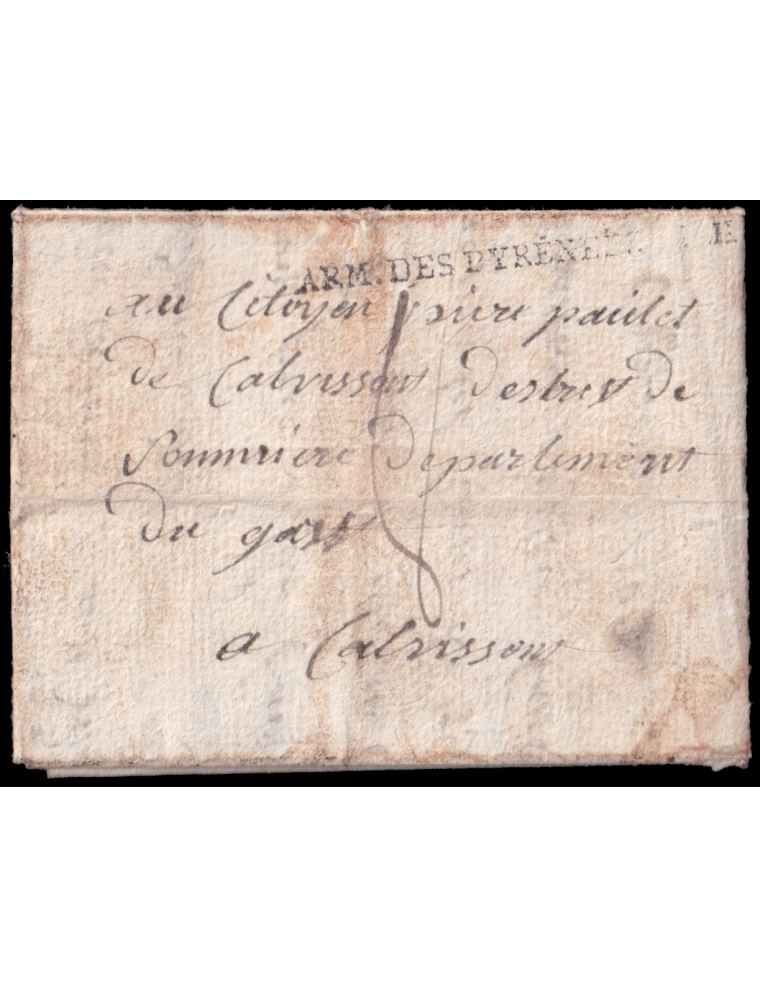 ARM. DES PYRÉNÉES
au Citoyen piere paulet
de Calvissont destrist de
sommiere departement
du gart
a Calvissont